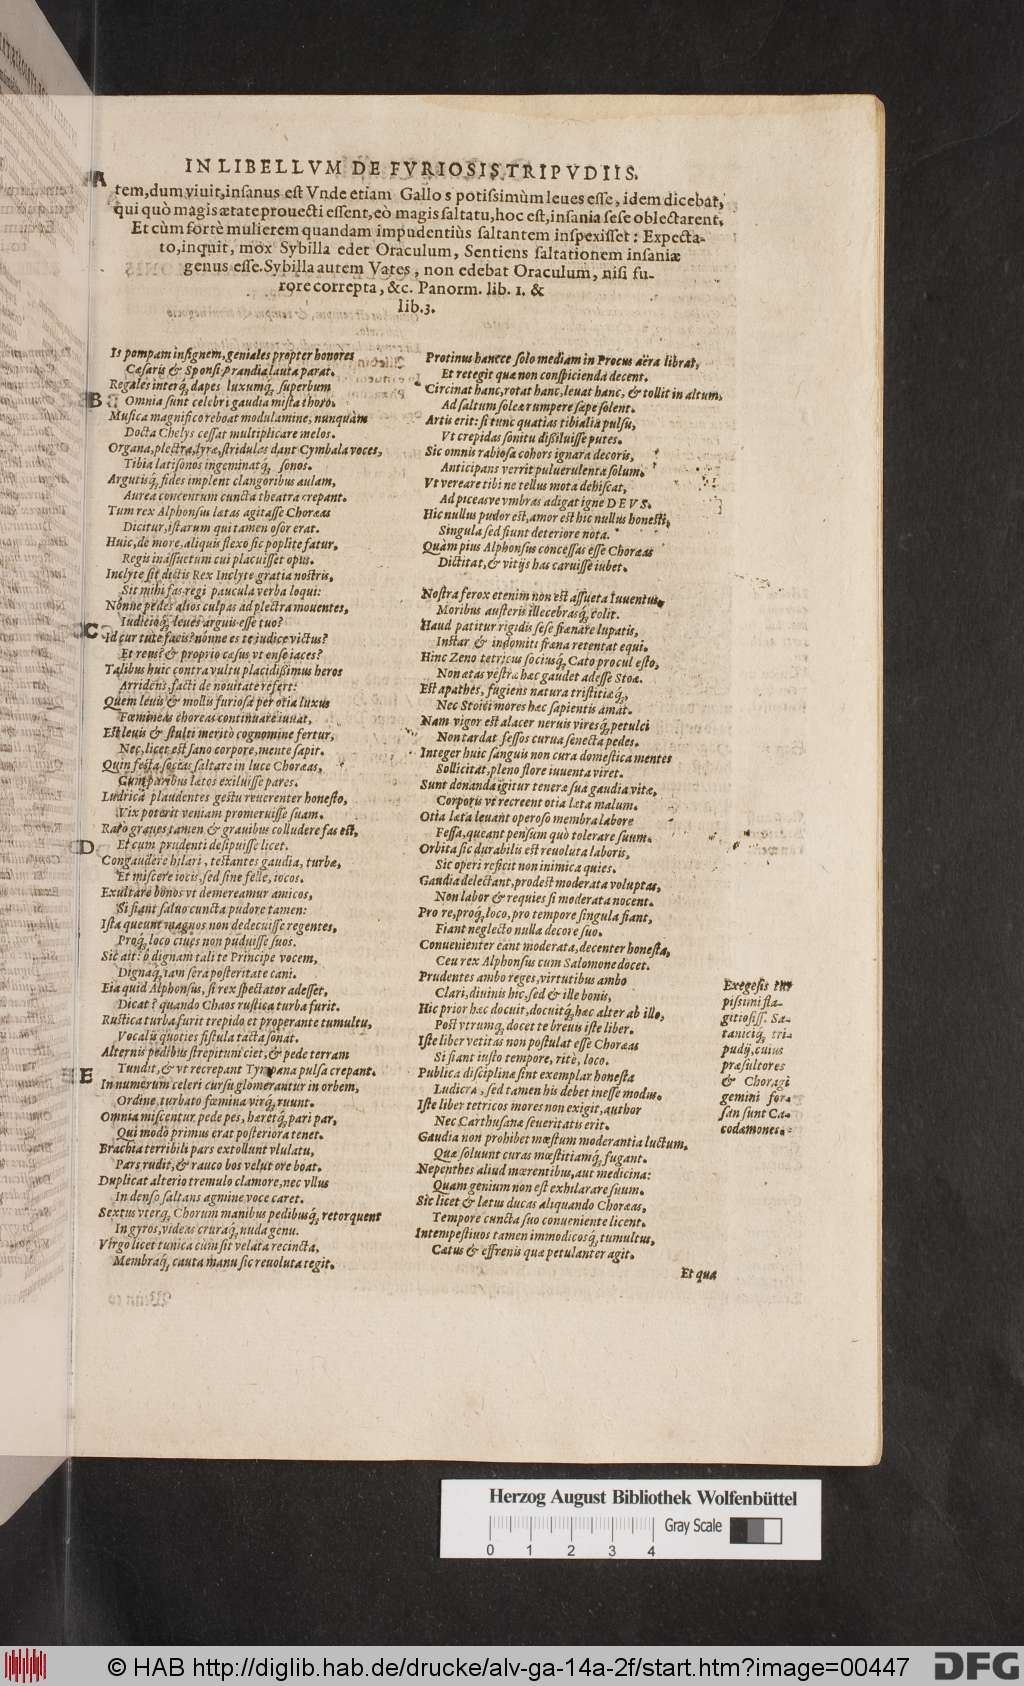 IN LIBELLVM DE FVRIOSIS TRIPVDIIS.
A
tem, dum viuit, insanus est Vnde etiam Gallos potissimùm leues esse, idem dicebat,
qui quò magis ætate prouecti essent, eò magis saltatu, hoc est, insania sese oblectarent.
Et cùm fortè mulierem quandam impudentiùs saltantem inspexisset: Expecta-
to, inquit, mox Sybilla edet Oraculum, Sentiens saltationem insaniæ
genus esse. Sybilla autem Vates, non edebat Oraculum, nisi fu-
rore correpta, &c. Panorm. lib. 1. &
lib. 3.
Is pompam insignem, geniales propter honores
Cæsaris & Sponsi prandia lauta parat.
Regales interq́; dapes luxumq́; superbum
B
Omnia sunt celebri gaudia mista thoro.
Musica magnifico reboat modulamine, nunquàm
Docta Chelys cessat multiplicare melos.
Organa, plectra, lyræ, stridulas dant Cymbala voces,
Tibia latisonos ingeminatq́; sonos.
Argutisq́; fides implent clangoribus aulam,
Aurea concentum cuncta theatra crepant.
Tum rex Alphonsus latas agitasse Choræas
Dicitur, istarum qui tamen osor erat.
Huic, de more, aliquis flexo sic poplite fatur,
Regis inassuetum cui placuisset opus.
Inclyte sit dictis Rex Inclyte gratia nostris,
Sit mihi fas regi paucula verba loqui:
Nónne pedes alios culpas ad plectra mouentes,
Iudicioq́; leues arguis esse tuo?
C
Id cur tute facis? nónne es te iudice victus?
Et reus? & proprio cæsus vt ense iaces?
Talibus huic contra vultu placidissimus heros
Arridens, facti de nouitate refert:
Quem leuis & mollis furiosa per otia luxus
Fœmineas choreas continuare iuuat,
Est leuis & stulti meritò cognomine fertur,
Nec, licet est sano corpore, mente sapit.
Quin festa socias saltare in luce Choræas,
Cum paribus lætos exiluisse pares.
Ludicra plaudentes gestu reuerenter honesto,
Vix poterit veniam promeruisse suam.
Rarò graues tamen & grauibus colludere fas est,
D
Et cum prudenti desipuisse licet.
Congaudere hilari, testantes gaudia, turbæ,
Et miscere iocis, sed sine felle, iocos.
Exultare bonos vt demereamur amicos,
Si fiant saluo cuncta pudore tamen:
Ista queunt magnos non dedecuisse regentes,
Proq́; loco ciues non puduisse suos.
Sic ait: ô dignam tali te Principe vocem,
Dignaq́; iam sera posteritate cani.
Eia quid Alphonsus, si rex spectator adesset,
Dicat? quando Chaos rustica turba furit.
Rustica turba furit trepido et properante tumultu,
Vocalis quoties fistula tacta sonat.
Alternis pedibus strepitum ciet, & pede terram
Tundit, & vt recrepant Tympana pulsa crepant.
E
In numerum celeri cursu glomerantur in orbem,
Ordine turbato fœmina virq́; ruunt.
Omnia miscentur, pede pes, hæretq́; pari par,
Qui modò primus erat posteriora tenet.
Brachia terribili pars extollunt vlulatu,
Pars rudit, & rauco bos velut ore boat.
Duplicat alterio tremulo clamore, nec vllus
In denso saltans agmine voce caret.
Sextus vterq́; Chorum manibus pedibusq́; retorquent
In gyros, videas cruraq́; nuda genu.
Virgo licet tunica cùm sit velata recincta,
Membraq́; cauta manu sic reuoluta tegit.
Protinus hancce solo mediam in Procus aëra librat,
Et retegit quæ non conspicienda decent.
Circinat hanc, rotat hanc, leuat hanc, & tollit in altum,
Ad saltum soleæ rumpere sæpe solent.
Artis erit: si tunc quatias tibialia pulsu,
Vt crepidas sonitu dissiluisse putes.
Sic omnis rabiosa cohors ignara decoris,
Anticipans verrit puluerulenta solum.
Vt vereare tibi ne tellus mota dehiscat,
Ad piceasve vmbras adigat igne DEVS.
Hic nullus pudor est, amor est hic nullus honesti,
Singula sed fiunt deteriore nota.
Quàm pius Alphonsus concessas esse Choræas
Dictitat, & vitijs has caruisse iubet.
Nostra ferox etenim non est assueta iuuentus,
Moribus austeris illecebrasq́; colit.
Haud patitur rigidis sese frænare lupatis,
Instar & indomiti fræna retentat equi.
Hinc Zeno tetricus sociusq́; Cato procul esto,
Non ætas vestra hæc gaudet adesse Stoa.
Est apathes, fugiens natura tristitiæq́;
Nec Stoici mores hæc sapientis amat.
Nam vigor est alacer neruis viresq́; petulci
Non tardat fessos curua senecta pedes.
Integer huic sanguis non cura domestica mentes
Sollicitat, pleno flore iuuenta viret.
Sunt donanda igitur teneræ sua gaudia vitæ,
Corporis vt recreent otia læta malum.
Otia læta leuant operoso membra labore
Fessa, queant pensum quò tolerare suum.
Orbita sic durabilis est reuoluta laboris,
Sic operi reficit non inimica quies.
Gaudia delectant, prodest moderata voluptas,
Non labor & requies si moderata nocent.
Pro re, proq́; loco, pro tempore singula fiant,
Fiant neglecto nulla decore suo.
Conuenienter eant moderata, decenter honesta,
Ceu rex Alphonsus cum Salomone docet.
Prudentes ambo reges, virtutibus ambo
Clari, diuinis hic, sed & ille bonis,
Hic prior hæc docuit, docuitq́; hæc alter ab illo,
Post vtrumq́; docet te breuis iste liber.
Iste liber vetitas non postulat esse Choræas
Si fiant iusto tempore, ritè, loco.
Publica disciplinæ sint exemplar honesta
Ludicra, sed tamen his debet inesse modus.
Iste liber tetricos mores non exigit, author
Nec Carthusanæ seueritatis erit.
Gaudia non prohibet mæstum moderantia luctum,
Quæ soluunt curas mœstitiamq́; fugant.
Nepenthes aliud mœrentibus, aut medicina:
Quam genium non est exhilarare suum.
Sic licet & lætus ducas aliquando Choræas,
Tempore cuncta suo conueniente licent.
Intempestiuos tamen immodicosq́; tumultus,
Cætus & effrenis quæ petulanter agit.
Exegesis tur
pissimi fla-
gitiosiss. Sa-
taniciq́; tri-
pudij, cuius
præsultores
& Choragi
gemini for-
san sunt Ca-
codæmones.
Et qua
Herzog August Bibliothek Wolfenbüttel
Gray Scale
0 1 2 3 4
© HAB http://diglib.hab.de/drucke/alv-ga-14a-2f/start.htm?image=00447
DFG